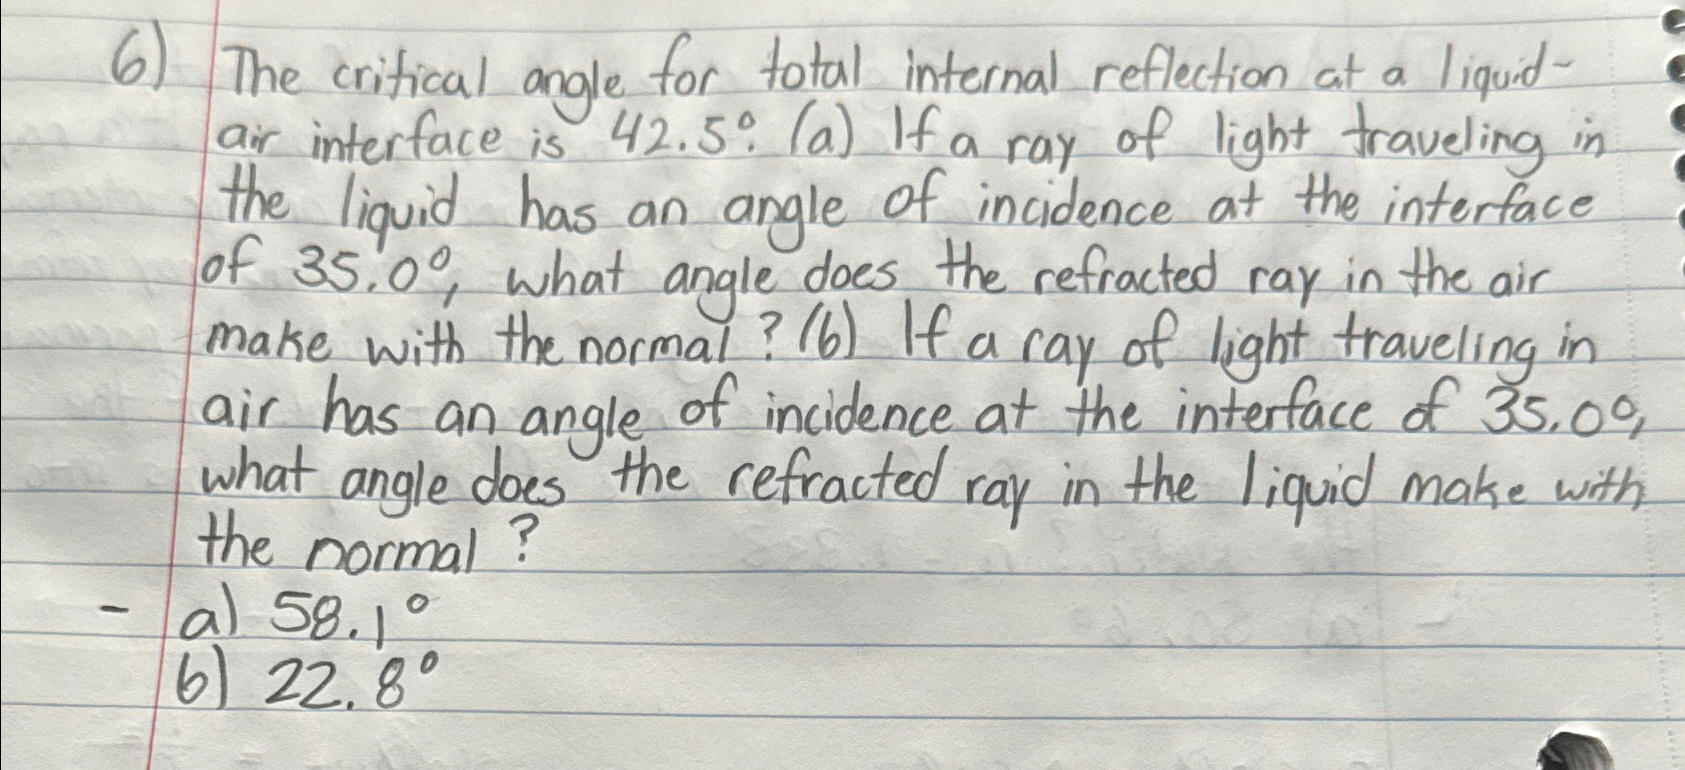 6) The critical angle for total internal reflection at a liquid-
air interface is 42.5°. (a) If a ray of light traveling in
the liquid has an angle of incidence at the interface
of 35.0°, what angle does the refracted ray in the air
make with the normal? (b) If a ray of light traveling in
air has an angle of incidence at the interface of 35.0°,
what angle does the refracted ray in the liquid make with
the normal?
- a) 58.1°
b) 22.8°